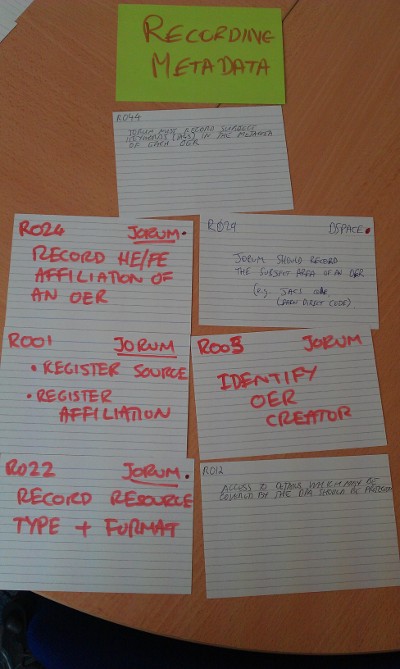 RECORDING
METADATA
R044
JORUM MUST RECORD
IN THE METADATA
OF EACH OER
R024 JORUM.
RECORD HE/FE
AFFILIATION OF
AN OER
R029 DSPACE
JORUM SHOULD RECORD
THE SUBJECT AREA OF AN OER
(e.g. JACS code,
(LEARN DIRECT CODE)
R001 JORUM
• REGISTER SOURCE
• REGISTER
AFFILIATION
R005 JORUM
IDENTIFY
OER
CREATOR
R022 JORUM.
RECORD RESOURCE
TYPE + FORMAT
R012
ACCESS TO DETAILS WHICH MAY BE
COVERED BY THE DPA SHOULD BE